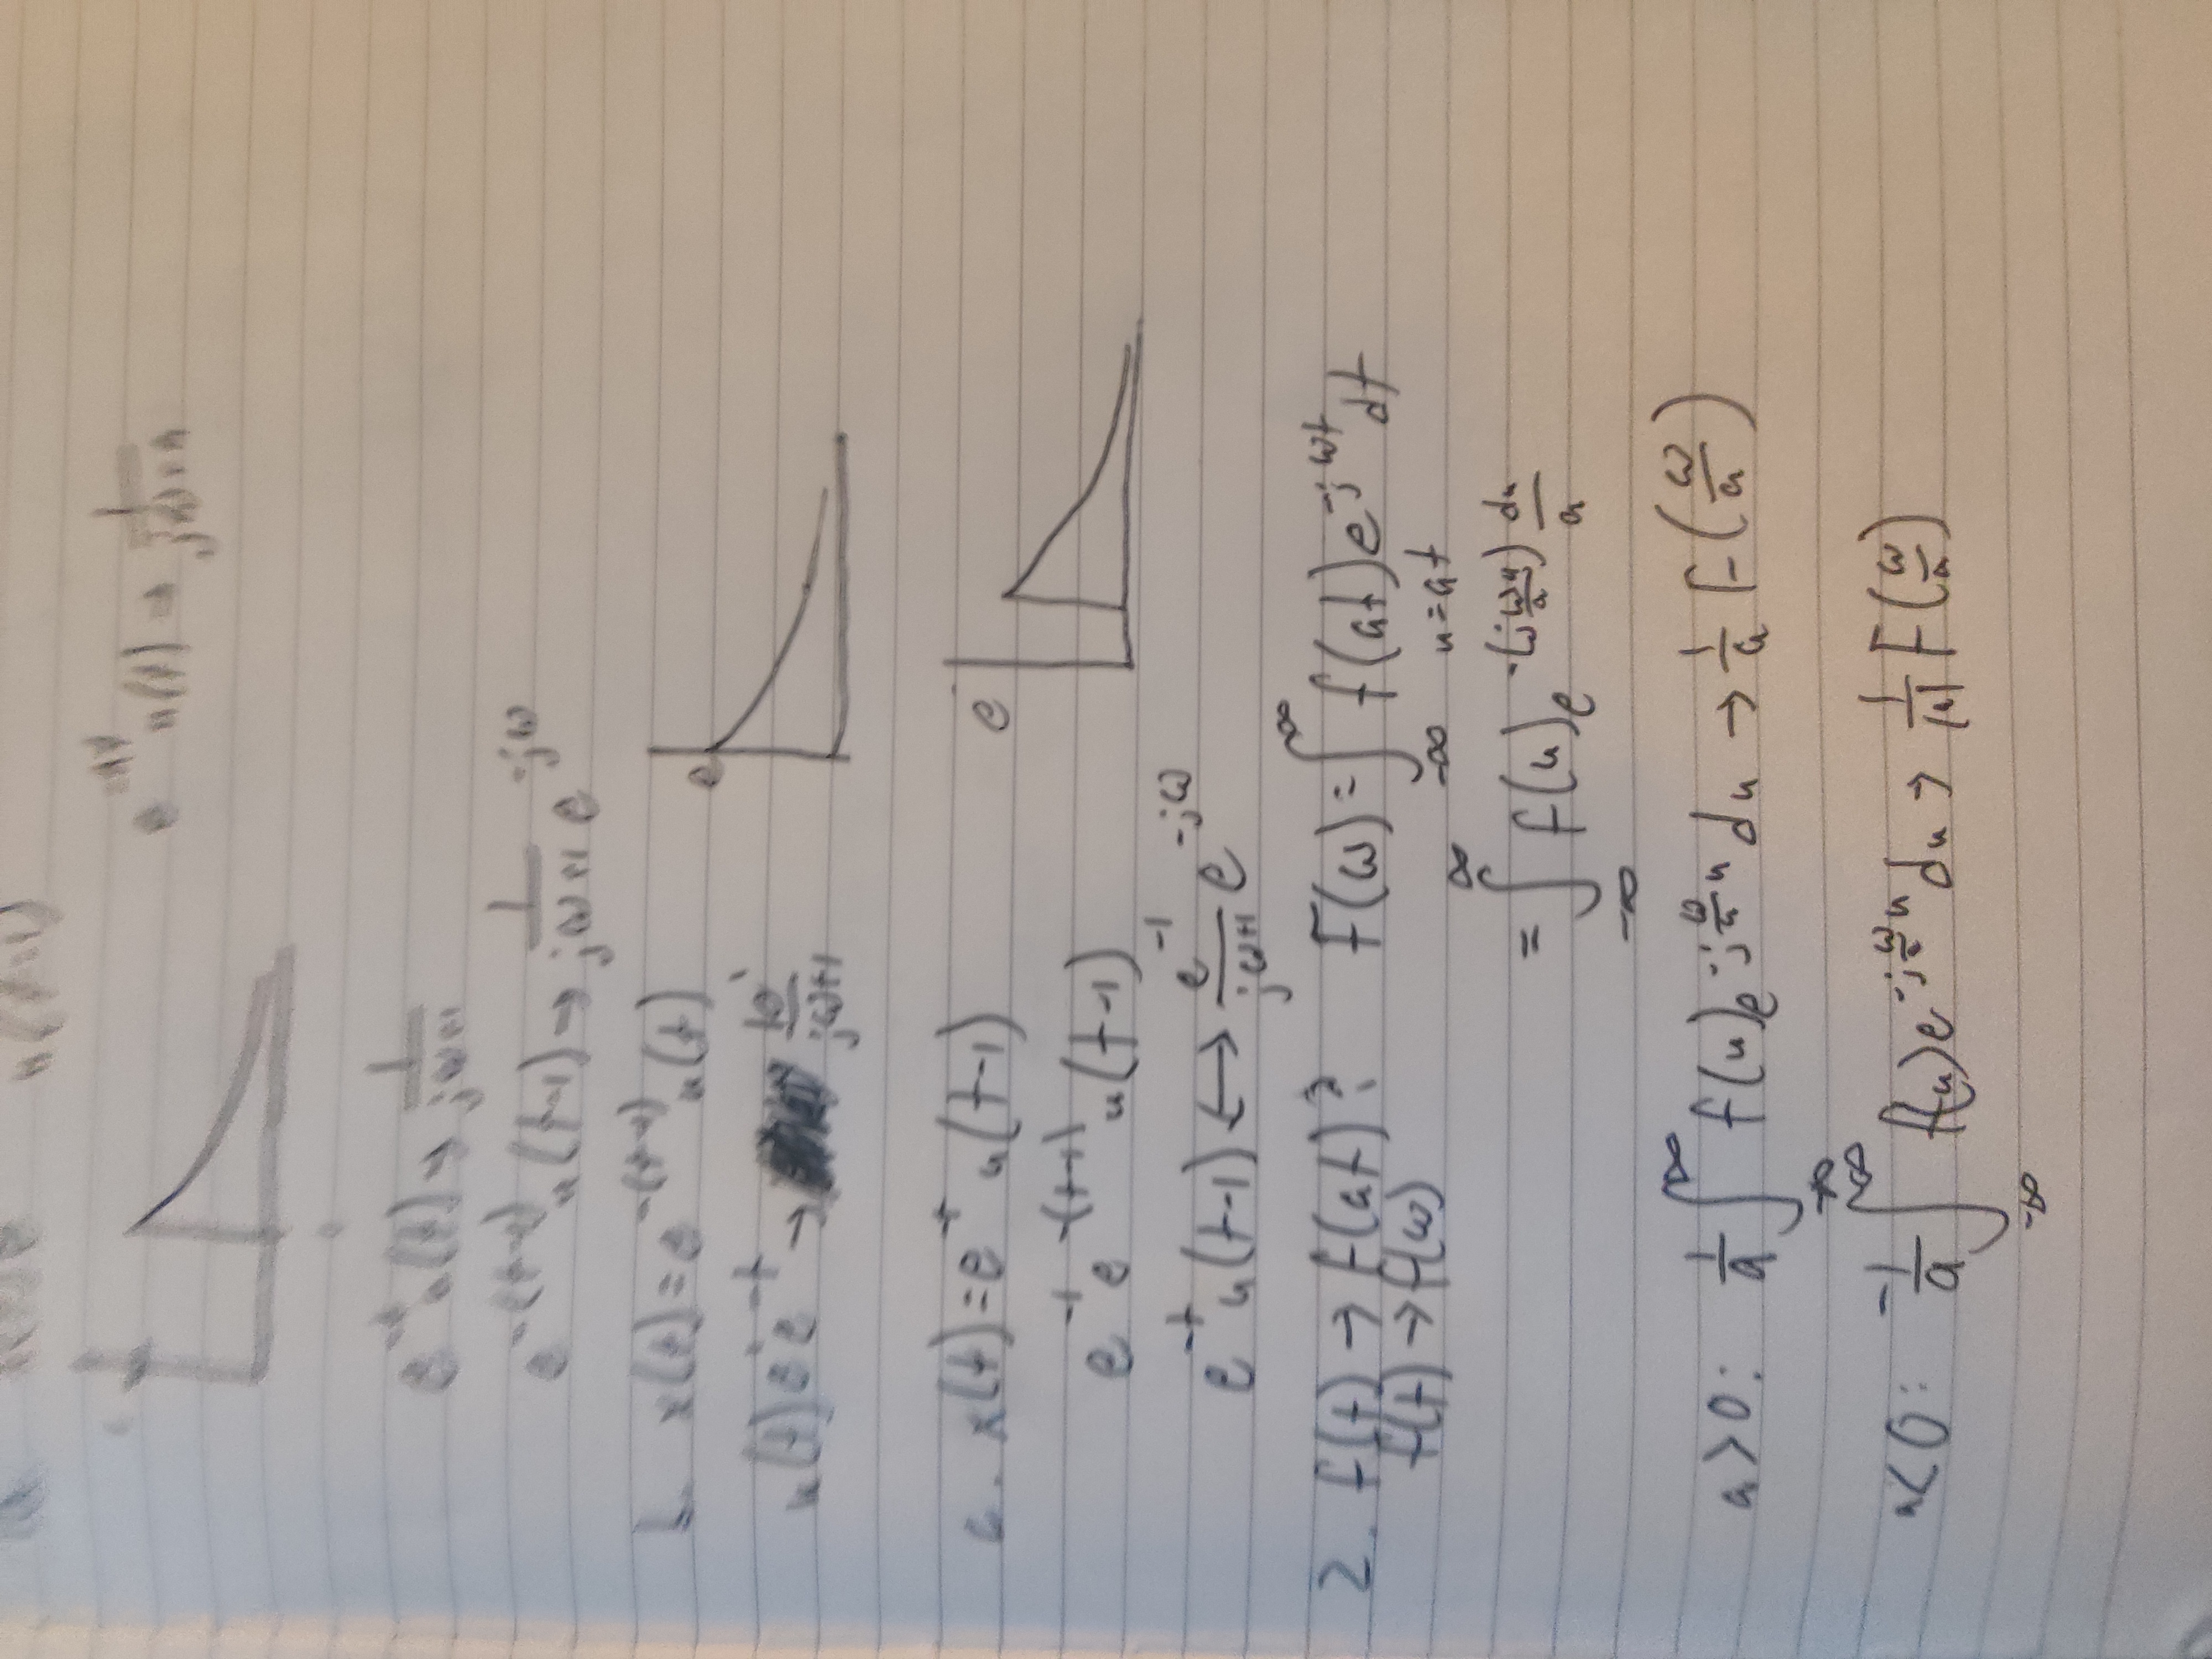 u(t-1)
e^{-at} u(t) → 1/(jω+a)
e^{-t} u(t) → 1/(jω+1)
e^{-(t-1)} u(t-1) → 1/(jω+1) e^{-jω}
b. x(t) = e^{-(t-1)} u(t)
e
u(t) e^1 e^{-t} → 1e^1/(jω+1)
c. x(t) = e^{-t} u(t-1)
e
e^{-1} e^{-(t-1)} u(t-1)
e^{-t} u(t-1) ↔ e^{-1}/(jω+1) e^{-jω}
2. f(t) → f(at)? F(ω) = ∫_{-∞}^{∞} f(at) e^{-jωt} dt
f(t) → f(ω) u = at
= ∫_{-∞}^{∞} f(u) e^{-(jωu/a)} du/a
a > 0: 1/a ∫_{-∞}^{∞} f(u) e^{-j(ω/a)u} du → 1/a F(ω/a)
a < 0: -1/a ∫_{-∞}^{∞} f(u) e^{-j(ω/a)u} du → 1/|a| F(ω/a)